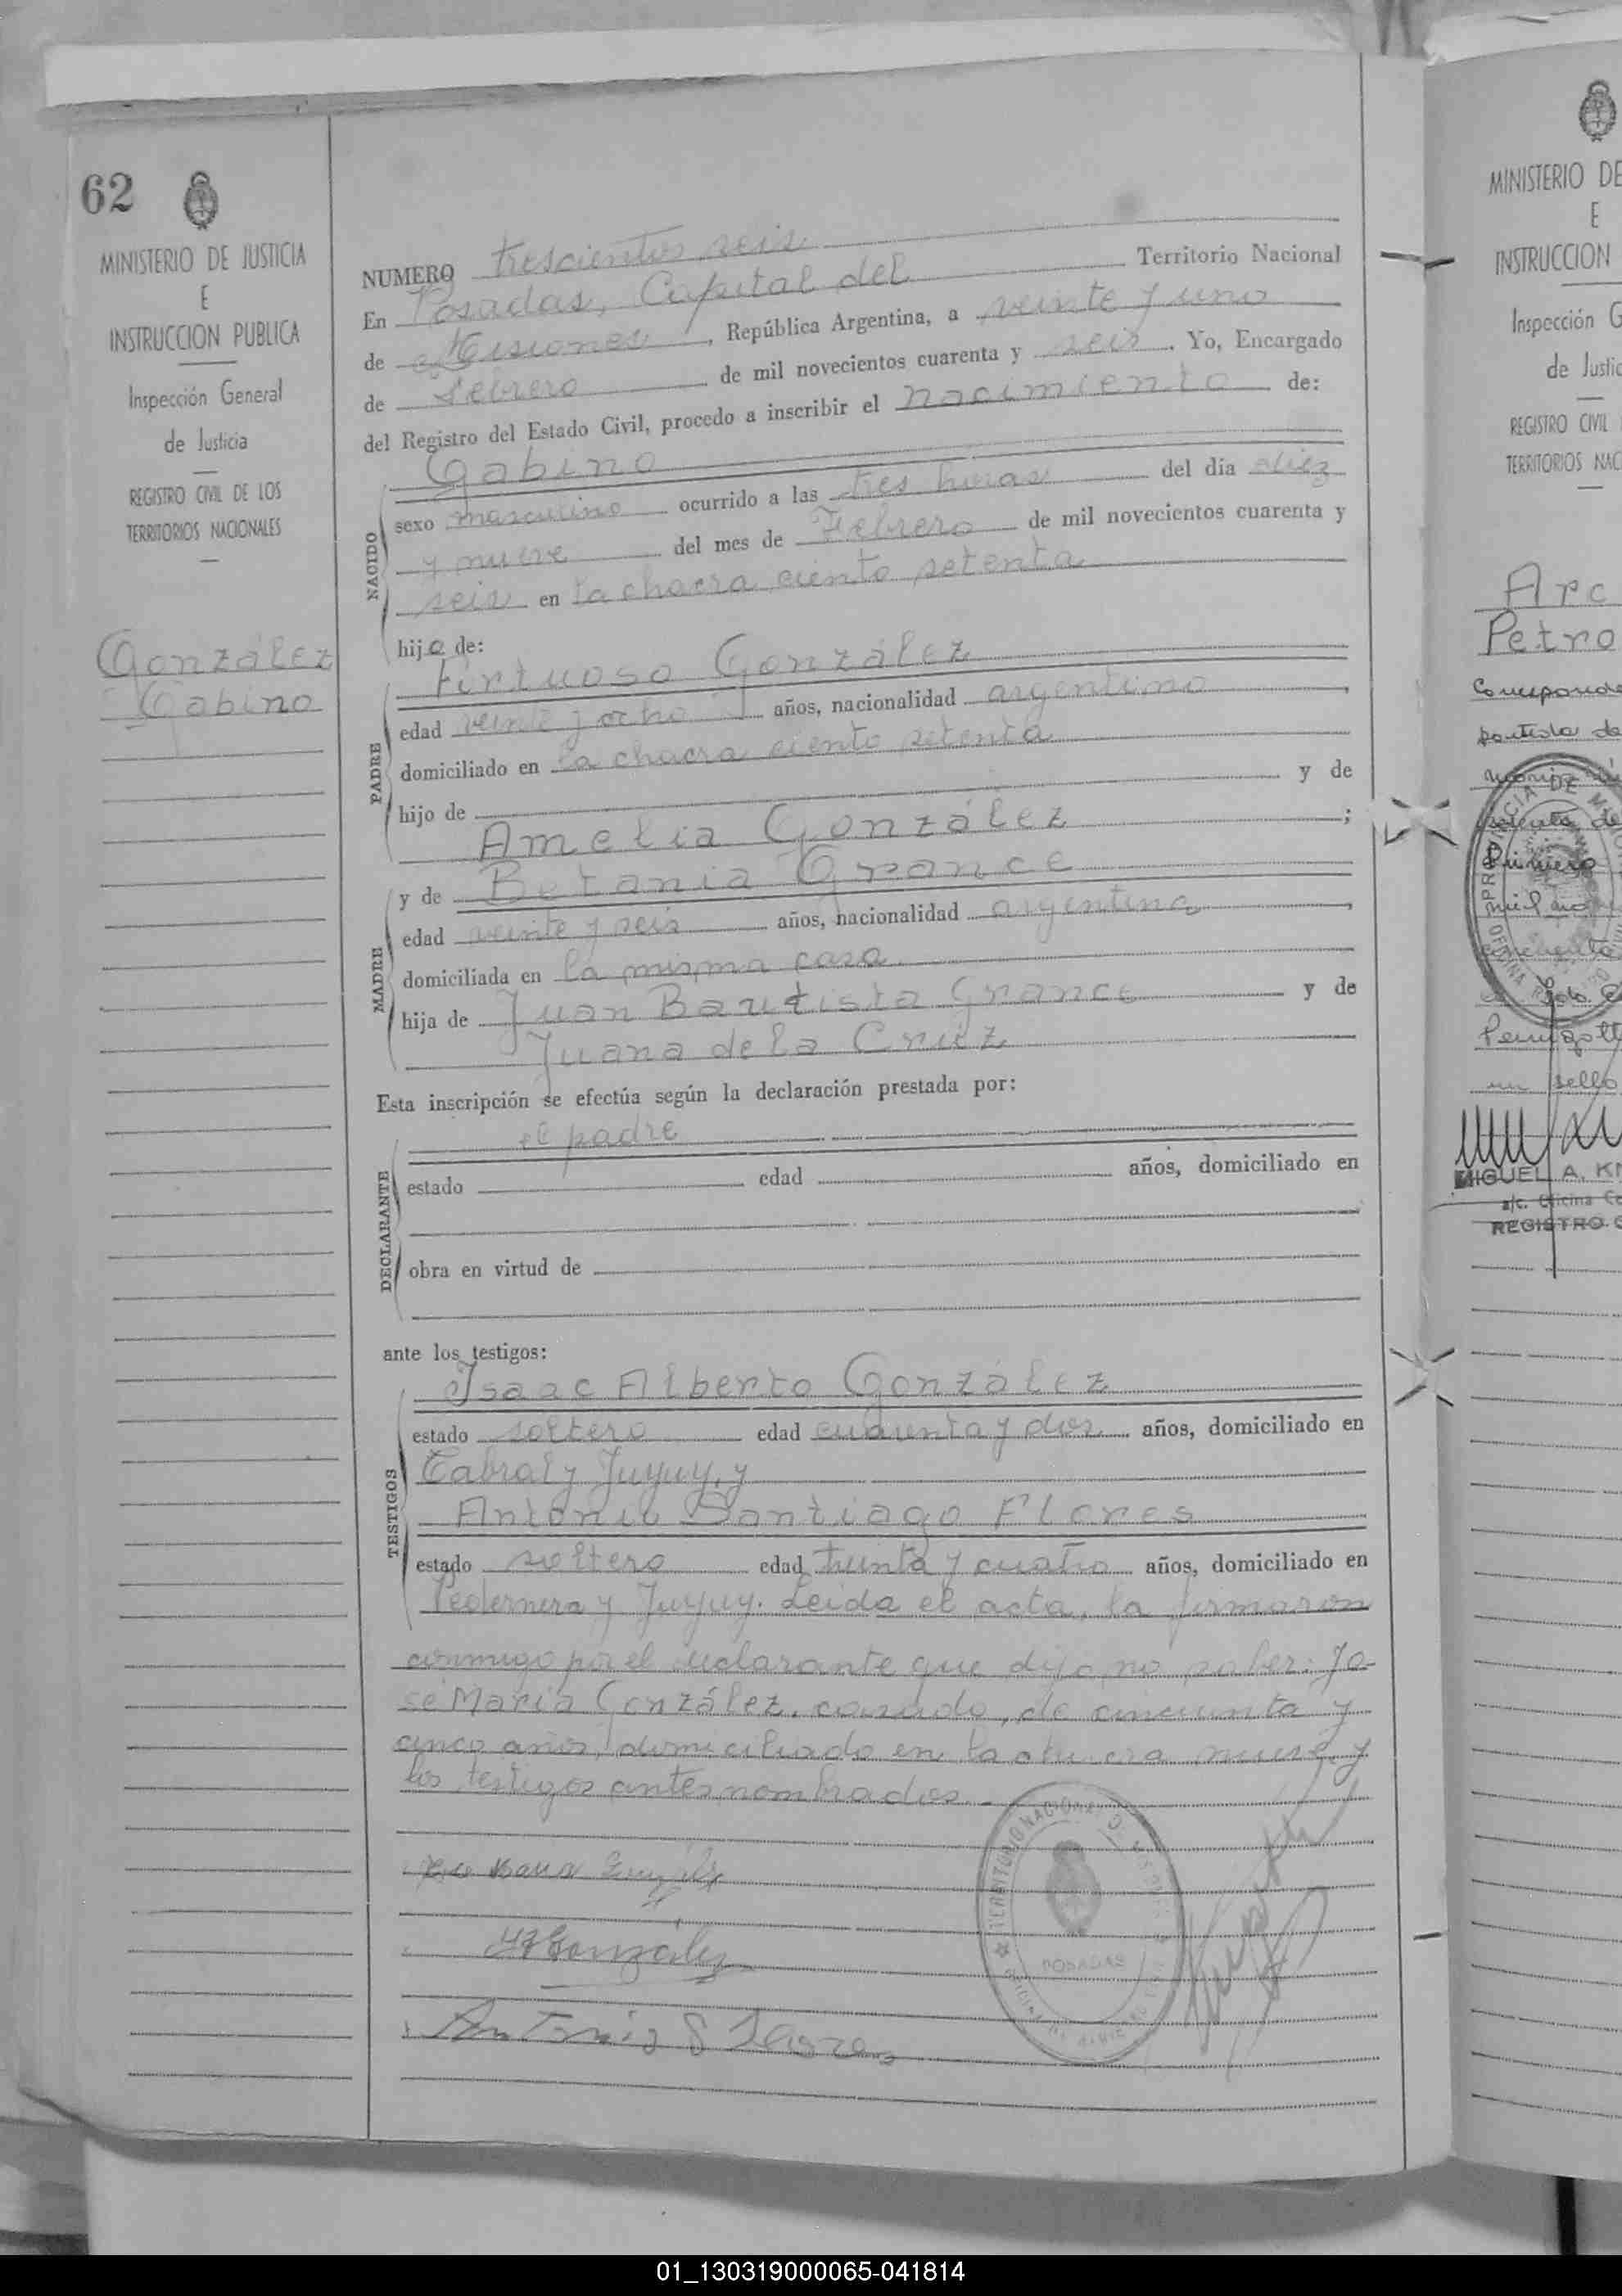 62
MINISTERIO DE JUSTICIA
E
INSTRUCCION PUBLICA
Inspección General
de Justicia
REGISTRO CIVIL DE LOS
TERRITORIOS NACIONALES
González
Gabino
NUMERO trescientos seis
En Posadas, Capital del Territorio Nacional
de Misiones, República Argentina, a veinte y uno
de Febrero de mil novecientos cuarenta y seis. Yo, Encargado
del Registro del Estado Civil, procedo a inscribir el nacimiento de:
NACIDO
Gabino
sexo masculino ocurrido a las tres horas del día diez
y nueve del mes de Febrero de mil novecientos cuarenta y
seis en la chacra ciento setenta
hijo de:
PADRE
Virtuoso González
edad veinte y ocho años, nacionalidad argentino,
domiciliado en la chacra ciento setenta
hijo de y de
Amelia González;
MADRE
y de Betania Grance
edad veinte y seis años, nacionalidad argentina,
domiciliada en la misma casa
hija de Juan Bautista Grance y de
Juana de la Cruz
Esta inscripción se efectúa según la declaración prestada por:
DECLARANTE
el padre
estado edad años, domiciliado en
obra en virtud de
ante los testigos:
TESTIGOS
Isaac Alberto González
estado soltero edad cuarenta y dos años, domiciliado en
Cabral y Jujuy, y
Antonio Santiago Flores
estado soltero edad treinta y cuatro años, domiciliado en
Pedernera y Jujuy. Leida el acta, la firmaron
conmigo por el declarante que dijo no saber: Jo-
sé María González, casado, de cincuenta y
cinco años, domiciliado en la chacra nueve, y
los testigos antes nombrados.-
González
Antonio S Flores
TERRITORIO NACIONAL DE MISIONES
POSADAS
MINISTERIO DE
E
INSTRUCCION
Inspección G
de Justic
REGISTRO CIVIL
TERRITORIOS NAC
Arc
Petro
Corresponde
partida de
Primero
mil no
un sello
MIGUEL A. KN
a/c. Oficina Ce
REGISTRO C
01_130319000065-041814